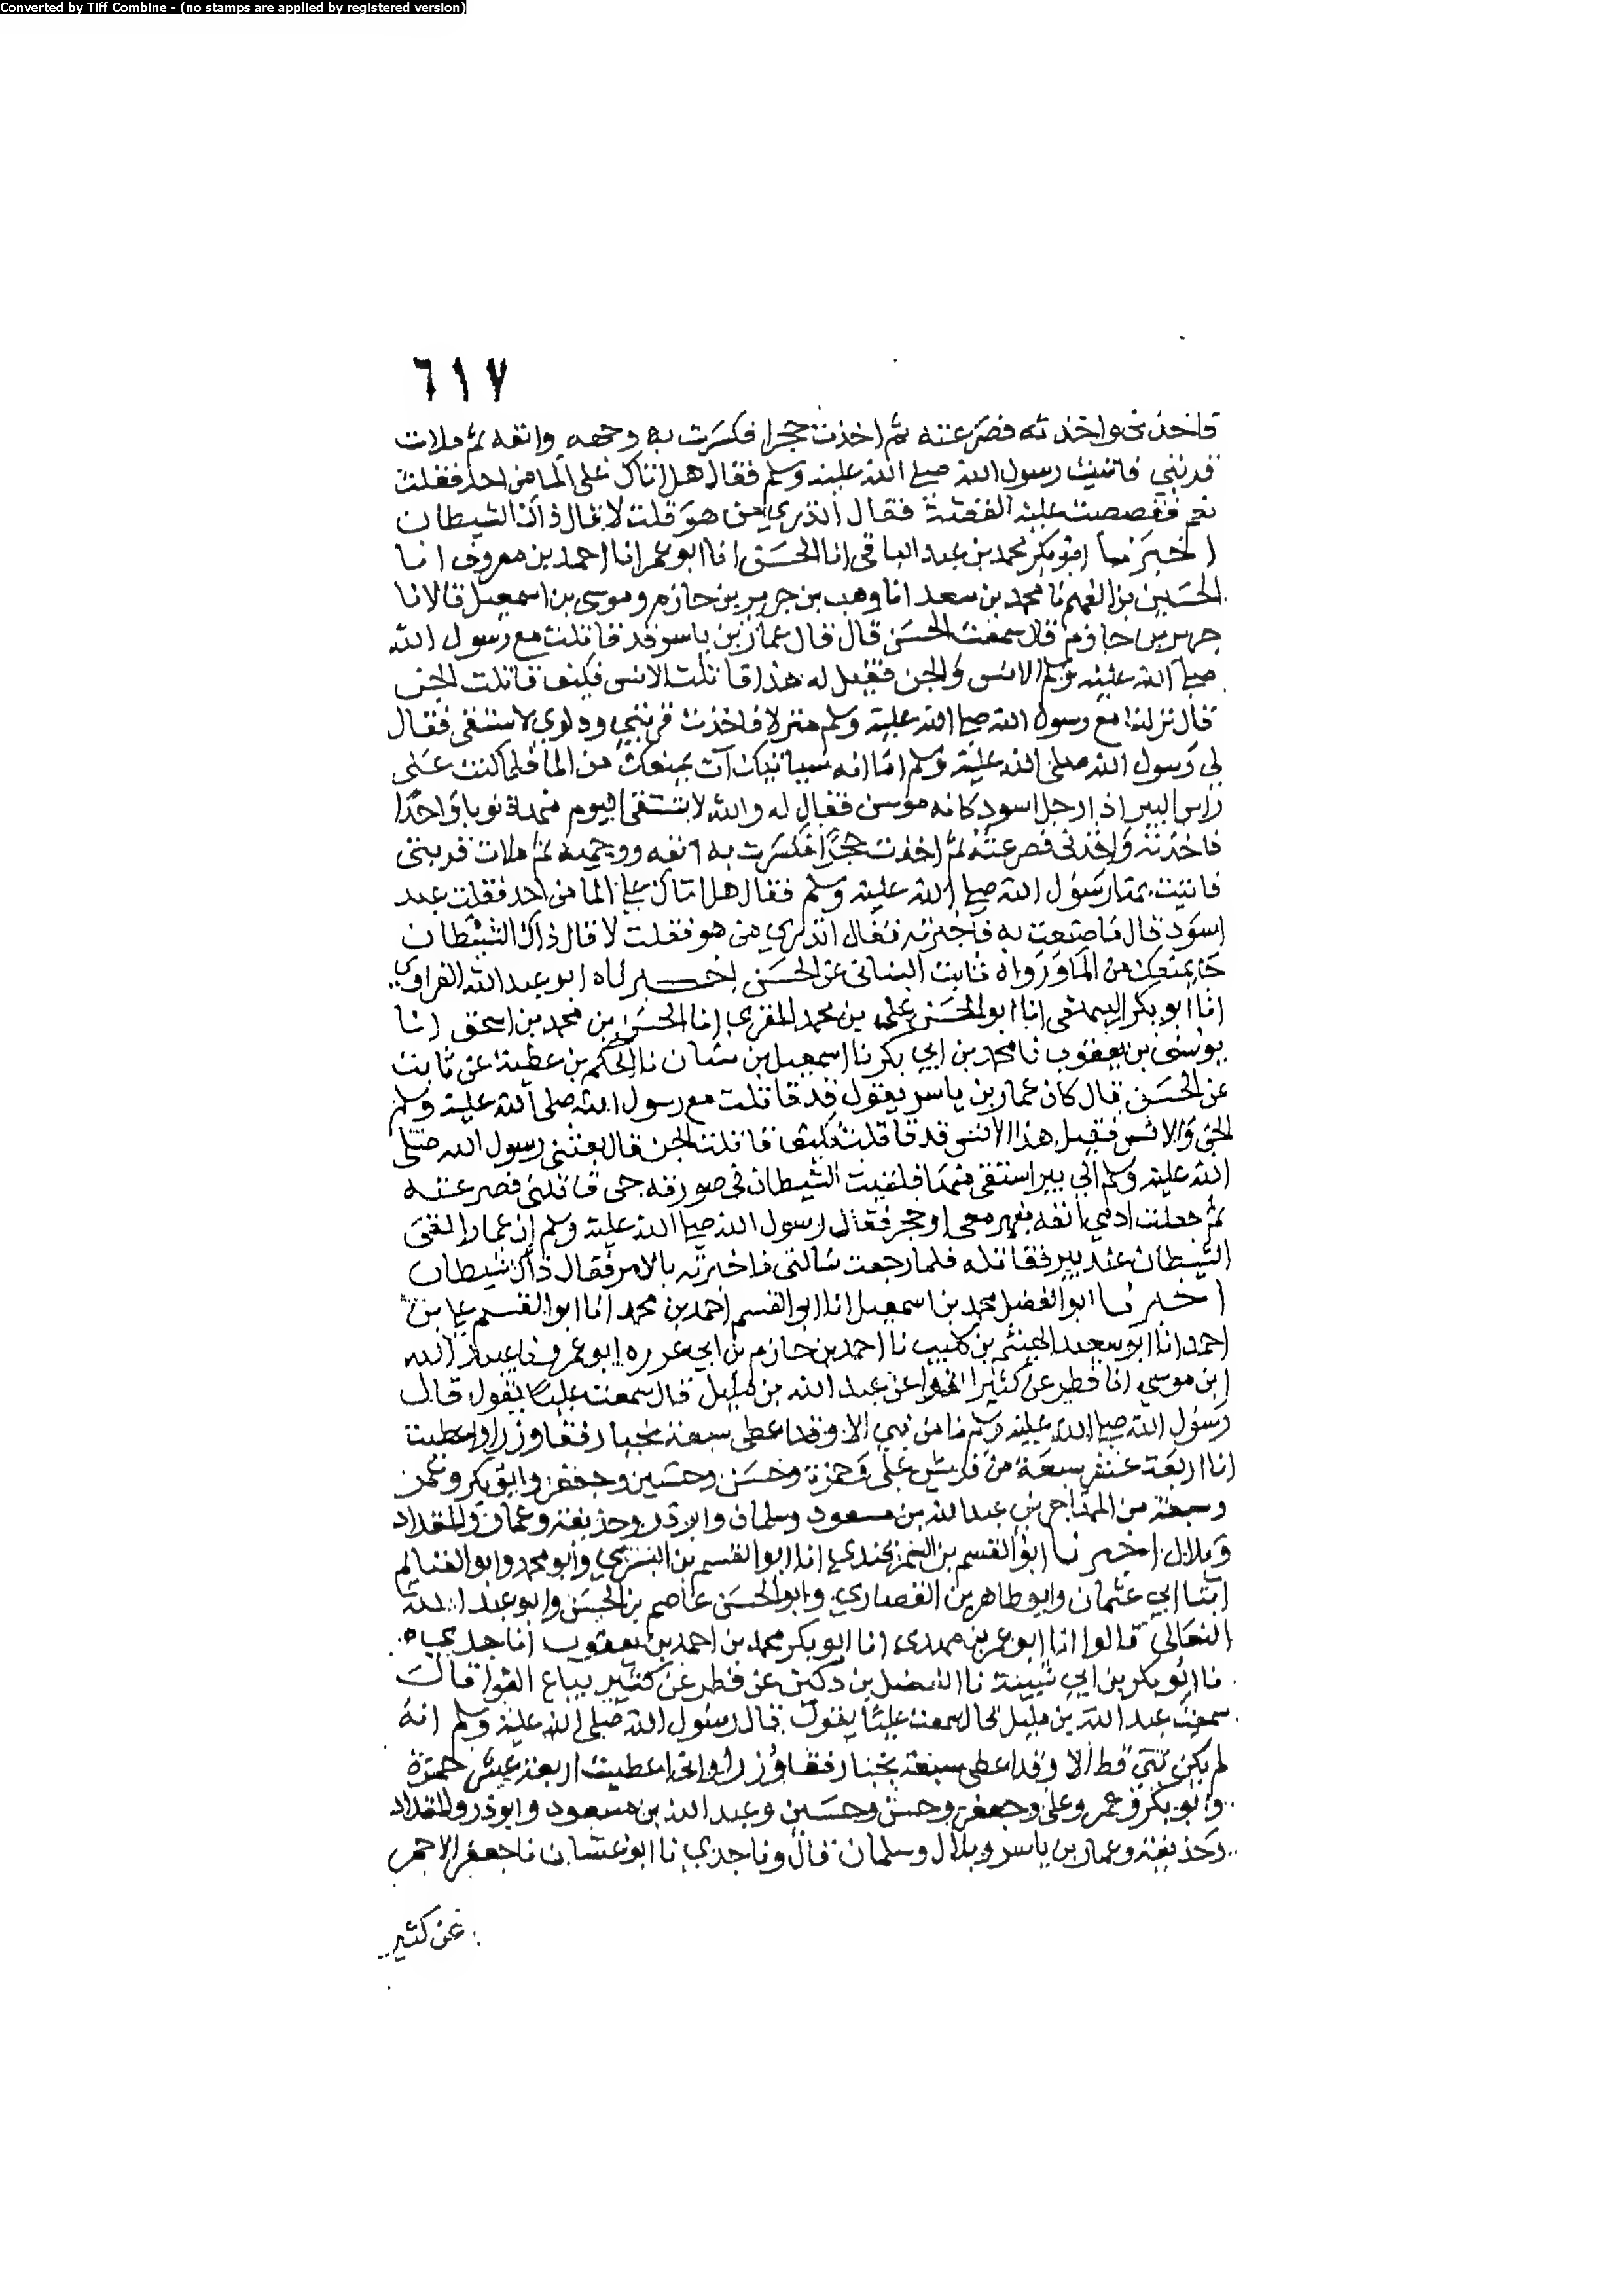 Converted by Tiff Combine - (no stamps are applied by registered version)
٦١٧
فاخذني واخذته فصرعته ثم اخذت حجرا فكسرت به وجهه وانفه ثم ملات
قربتي فاتيت رسول الله صلى الله عليه وسلم فقال هل اتاك على الما من احد فقلت
نعم فقصصت عليه القصة فقال اتدري من هو قلت لا قال ذاك الشيطان
اخبرنا ابو بكر محمد بن عبد الباقي انا الحسن انا ابو عمر انا احمد بن معروف انا
الحسين بن الفهم نا محمد بن سعد انا وهب بن جرير بن حازم وموسى بن اسمعيل قالا نا
جرير بن حازم قال سمعت الحسن قال قال عمار بن ياسر قد قاتلت مع رسول الله
صلى الله عليه وسلم الانس والجن فقيل له هذا قاتلت الانس فكيف قاتلت الجن
قال نزلنا مع رسول الله صلى الله عليه وسلم منزلا فاخذت قربتي ودلوي لاستقي فقال
لي رسول الله صلى الله عليه وسلم اما انه سياتيك آت يمنعك من الما فلما كنت على
راس البير اذا رجل اسود كانه مرس فقال له والله لا تستقي اليوم منها ذنوبا واحدا
فاخذته واخذني فصرعته ثم اخذت حجرا فكسرت به انفه ووجهه ثم ملات قربتي
فاتيت بها رسول الله صلى الله عليه وسلم فقال هل اتاك على الما من احد فقلت عبد
اسود قال ما صنعت به فاخبرته فقال اتدري من هو فقلت لا قال ذاك الشيطان
جا يمنعك من الما ورواه ثابت البناني عن الحسن اخبرناه ابو عبد الله الفراوي
انا ابو بكر البيهقي انا ابو الحسن علي بن محمد المقري انا الحسن بن محمد بن اسحق انا
يوسف بن يعقوب نا محمد بن ابي بكر نا اسمعيل بن سنان نا الحكم بن عطية عن ثابت
عن الحسن قال كان عمار بن ياسر يقول قد قاتلت مع رسول الله صلى الله عليه وسلم
الجن والانس فقيل هذا الانس قد قاتلت فكيف قاتلت الجن قال بعثني رسول الله صلى
الله عليه وسلم الى بير استقي منها فلقيت الشيطان في صورته حتى قاتلني فصرعته
ثم جعلت ادمي انفه بفهر معي او حجر فقال رسول الله صلى الله عليه وسلم ان عمارا لقي
الشيطان عند بير فقاتله فلما رجعت سالني فاخبرته بالامر فقال ذاك شيطان
اخبرنا ابو الفضل محمد بن اسمعيل انا ابو القسم احمد بن محمد انا ابو القسم علي بن
احمد انا ابو سعيد الهيثم بن كليب نا احمد بن حازم بن ابي عرره ابو عمرو نا عبيد الله
ابن موسى انا فطر عن كثير النوا عن عبد الله بن مليل قال سمعت عليا يقول قال
رسول الله صلى الله عليه وسلم ما من نبي الا وقد اعطى سبعة نجبا رفقا وزرا واعطيت
انا اربعة عشر سبعة من قريش علي وحمزة وحسن وحسين وجعفر وابو بكر وعمر
وسبعة من المهاجرين عبد الله بن مسعود وسلمان وابو ذر وحذيفة وعمار والمقداد
وبلال اخبرنا ابو القسم بن السمرقندي انا ابو القسم بن البسري وابو محمد وابو الغنايم
ابنا ابي عثمان وابو طاهر بن القصاري وابو الحسن عاصم بن الحسن وابو عبد الله
النعالي قالوا انا ابو عمر بن مهدي انا ابو بكر محمد بن احمد بن يعقوب انا جدي
نا ابو بكر بن ابي شيبة نا الفضل بن دكين عن فطر عن كثير بياع النوا قال
سمعت عبد الله بن مليل قال سمعت عليا يقول قال رسول الله صلى الله عليه وسلم انه
لم يكن نبي قط الا وقد اعطي سبعة نجبا رفقا وزرا وانما اعطيت اربعة عشر حمزة
وابو بكر وعمر وعلى وجعفر وحسن وحسين وعبد الله بن مسعود وابو ذر والمقداد
وحذيفة وعمار بن ياسر وبلال وسلمان قال ونا جدي نا ابو غسان نا جعفر الاحمر
عن كثير